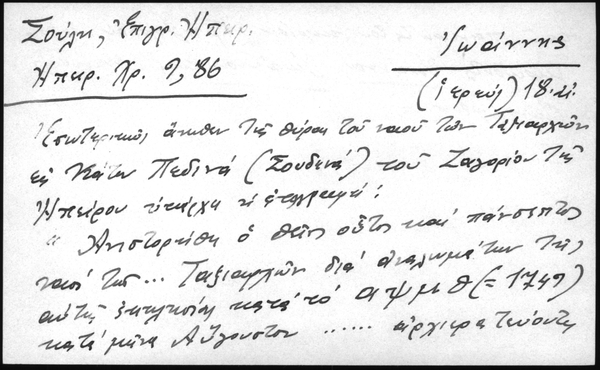 Σούλη, Ἐπιγρ. Ἠπειρ.
Ἠπειρ. Χρ. 9, 86
Ἰωάννης
(ἱερεύς) 18. αἰ.
Ἐσωτερικῶς ἄνωθεν τῆς θύρας τοῦ ναοῦ τῶν Ταξιαρχῶν
εἰς Κάτω Πεδινά (Σουδενά) τοῦ Ζαγορίου τῆς
Ἠπείρου ὑπάρχει ἡ ἐπιγραφή:
" Ἀνιστορήθη ὁ θεῖος οὗτος καί πάνσεπτος
ναός τῶν ... Ταξιαρχῶν διά ἀναλωμάτων τῆς
αὐτῆς ἐκκλησίας κατά τό αψμθ (= 1749)
κατά μῆνα Αὔγουστον ...... ἀρχιερατεύοντος